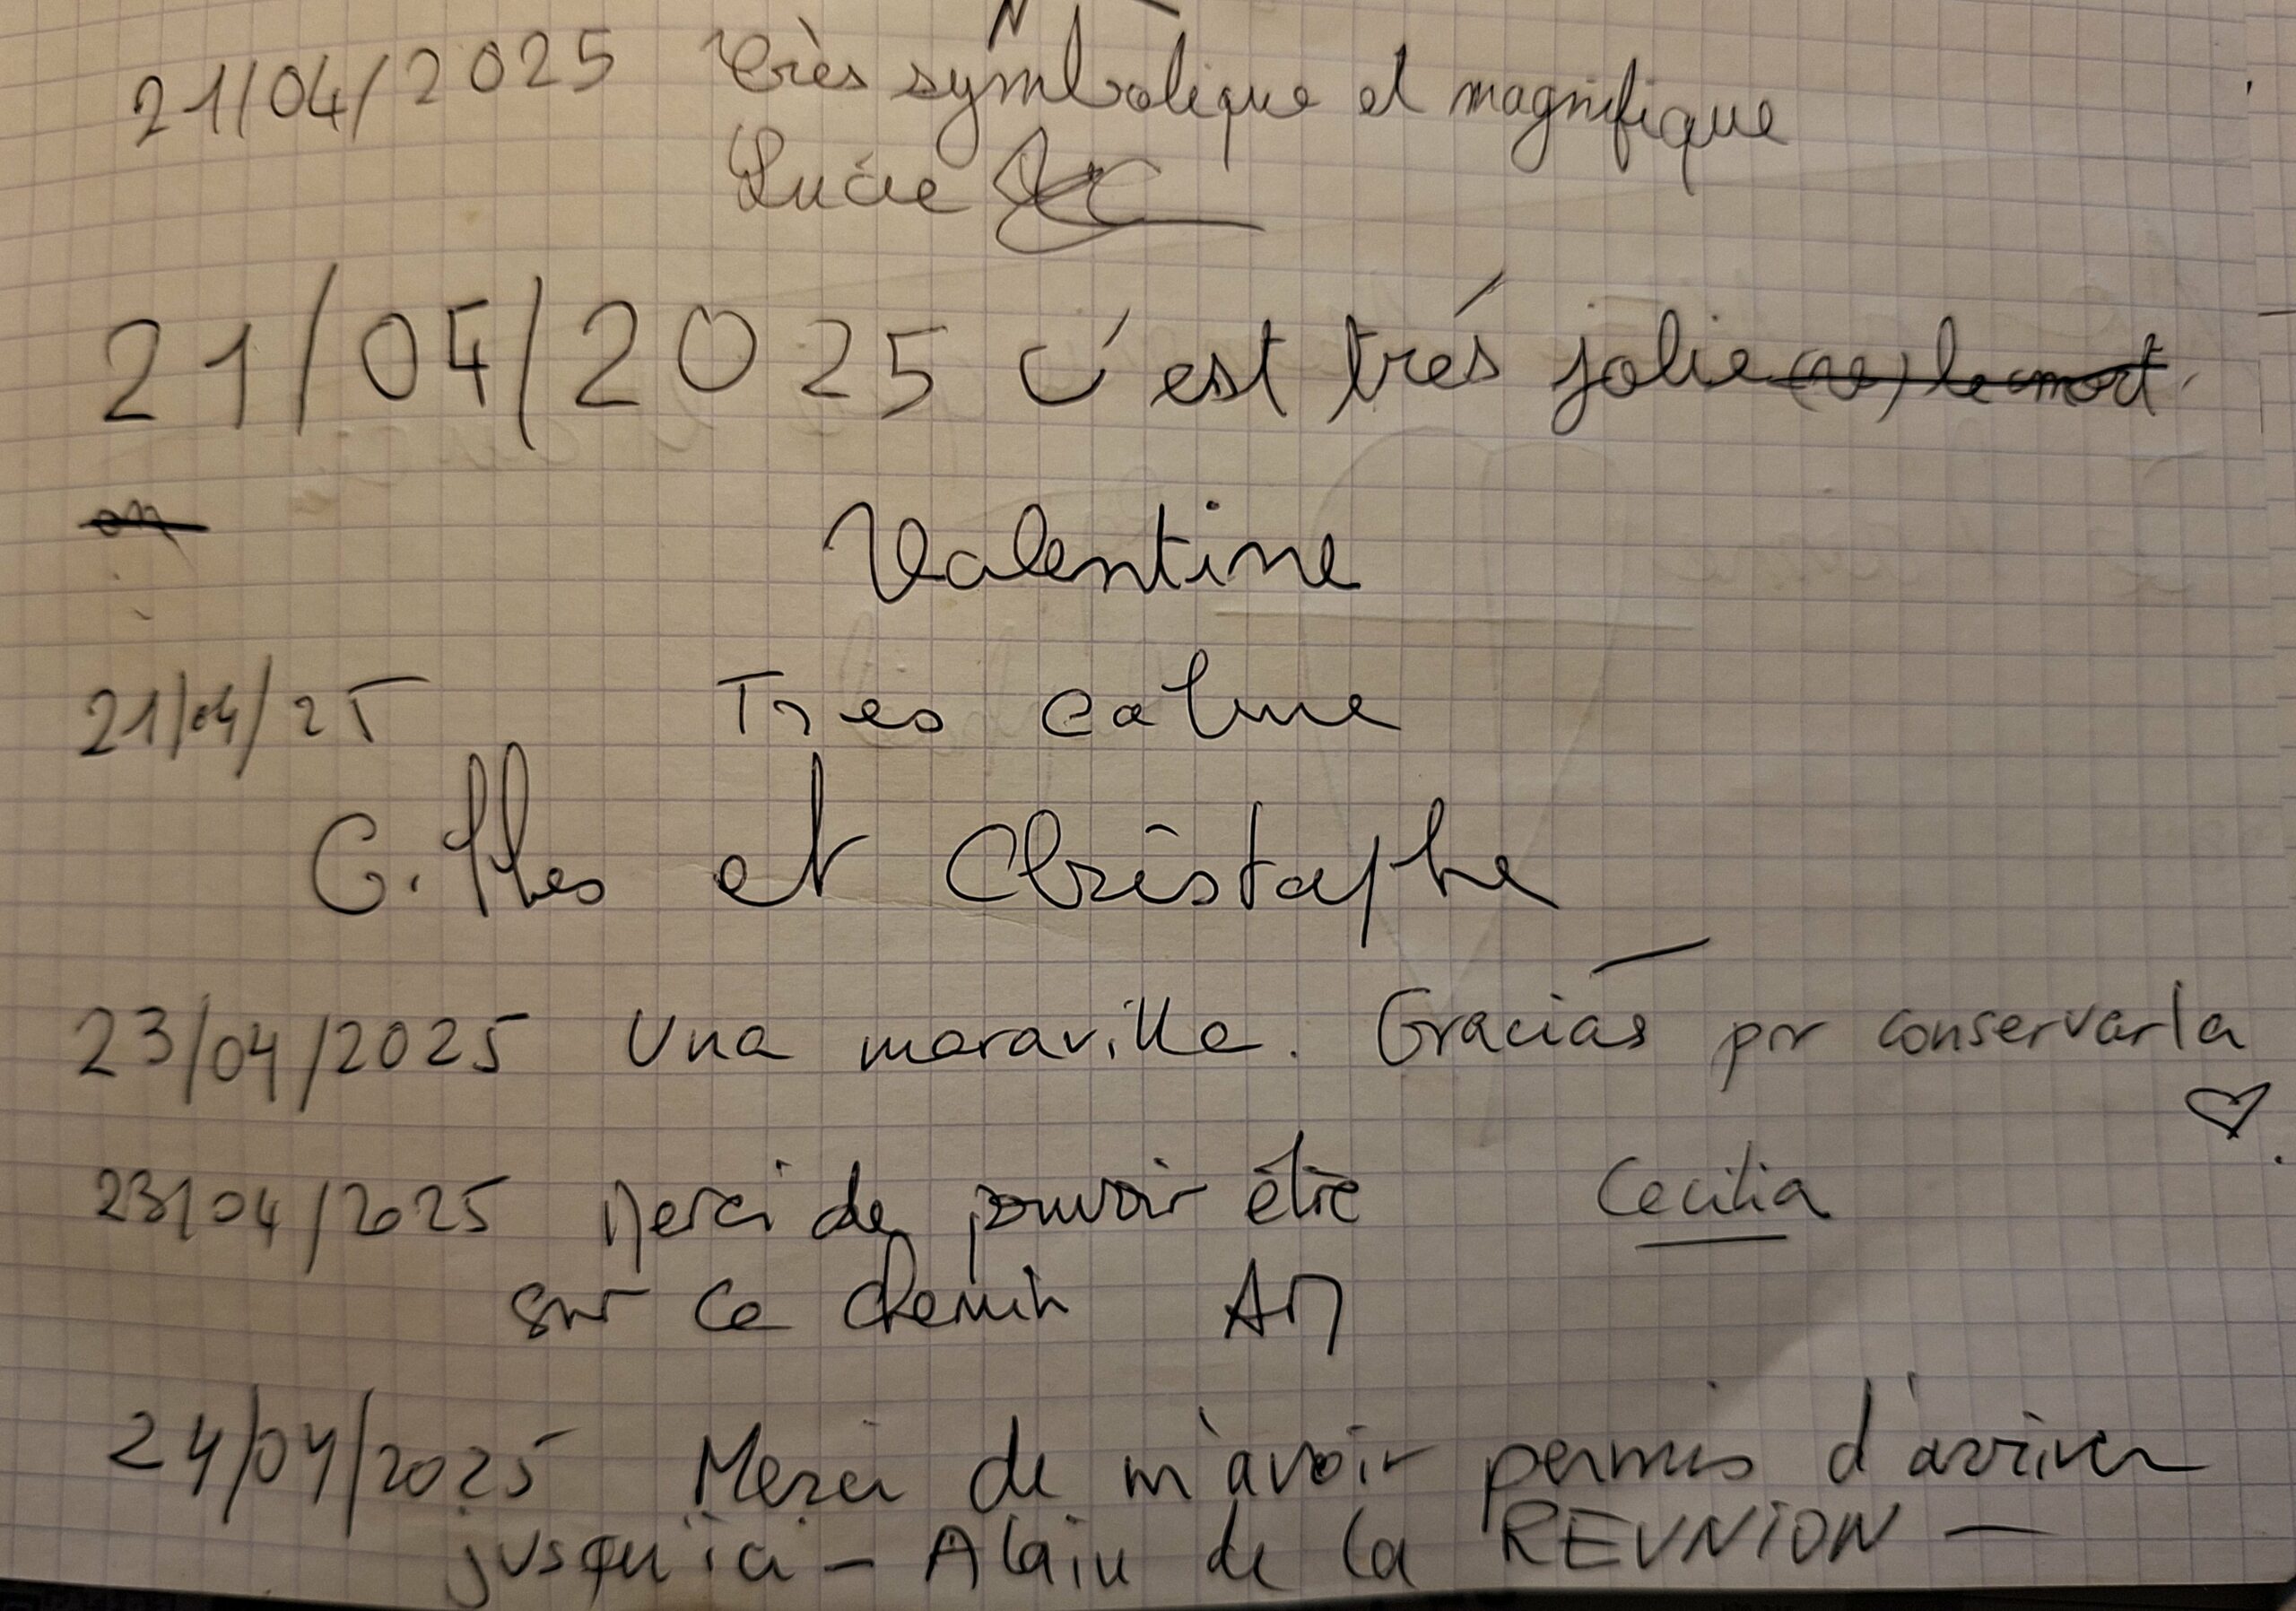 21/04/2025 très symbolique et magnifique
Lucie
21/04/2025 c'est trés jolie
Valentine
21/04/25 Tres calme
Gilles et Christophe
23/04/2025 Una maravilla. Gracias por conservarla
♡
23/04/2025 Merci de pouvoir être Cecilia
sur ce chemin AM
24/04/2025 Merci de m'avoir permis d'arriver
jusqu'ici - Alain de la REUNION -